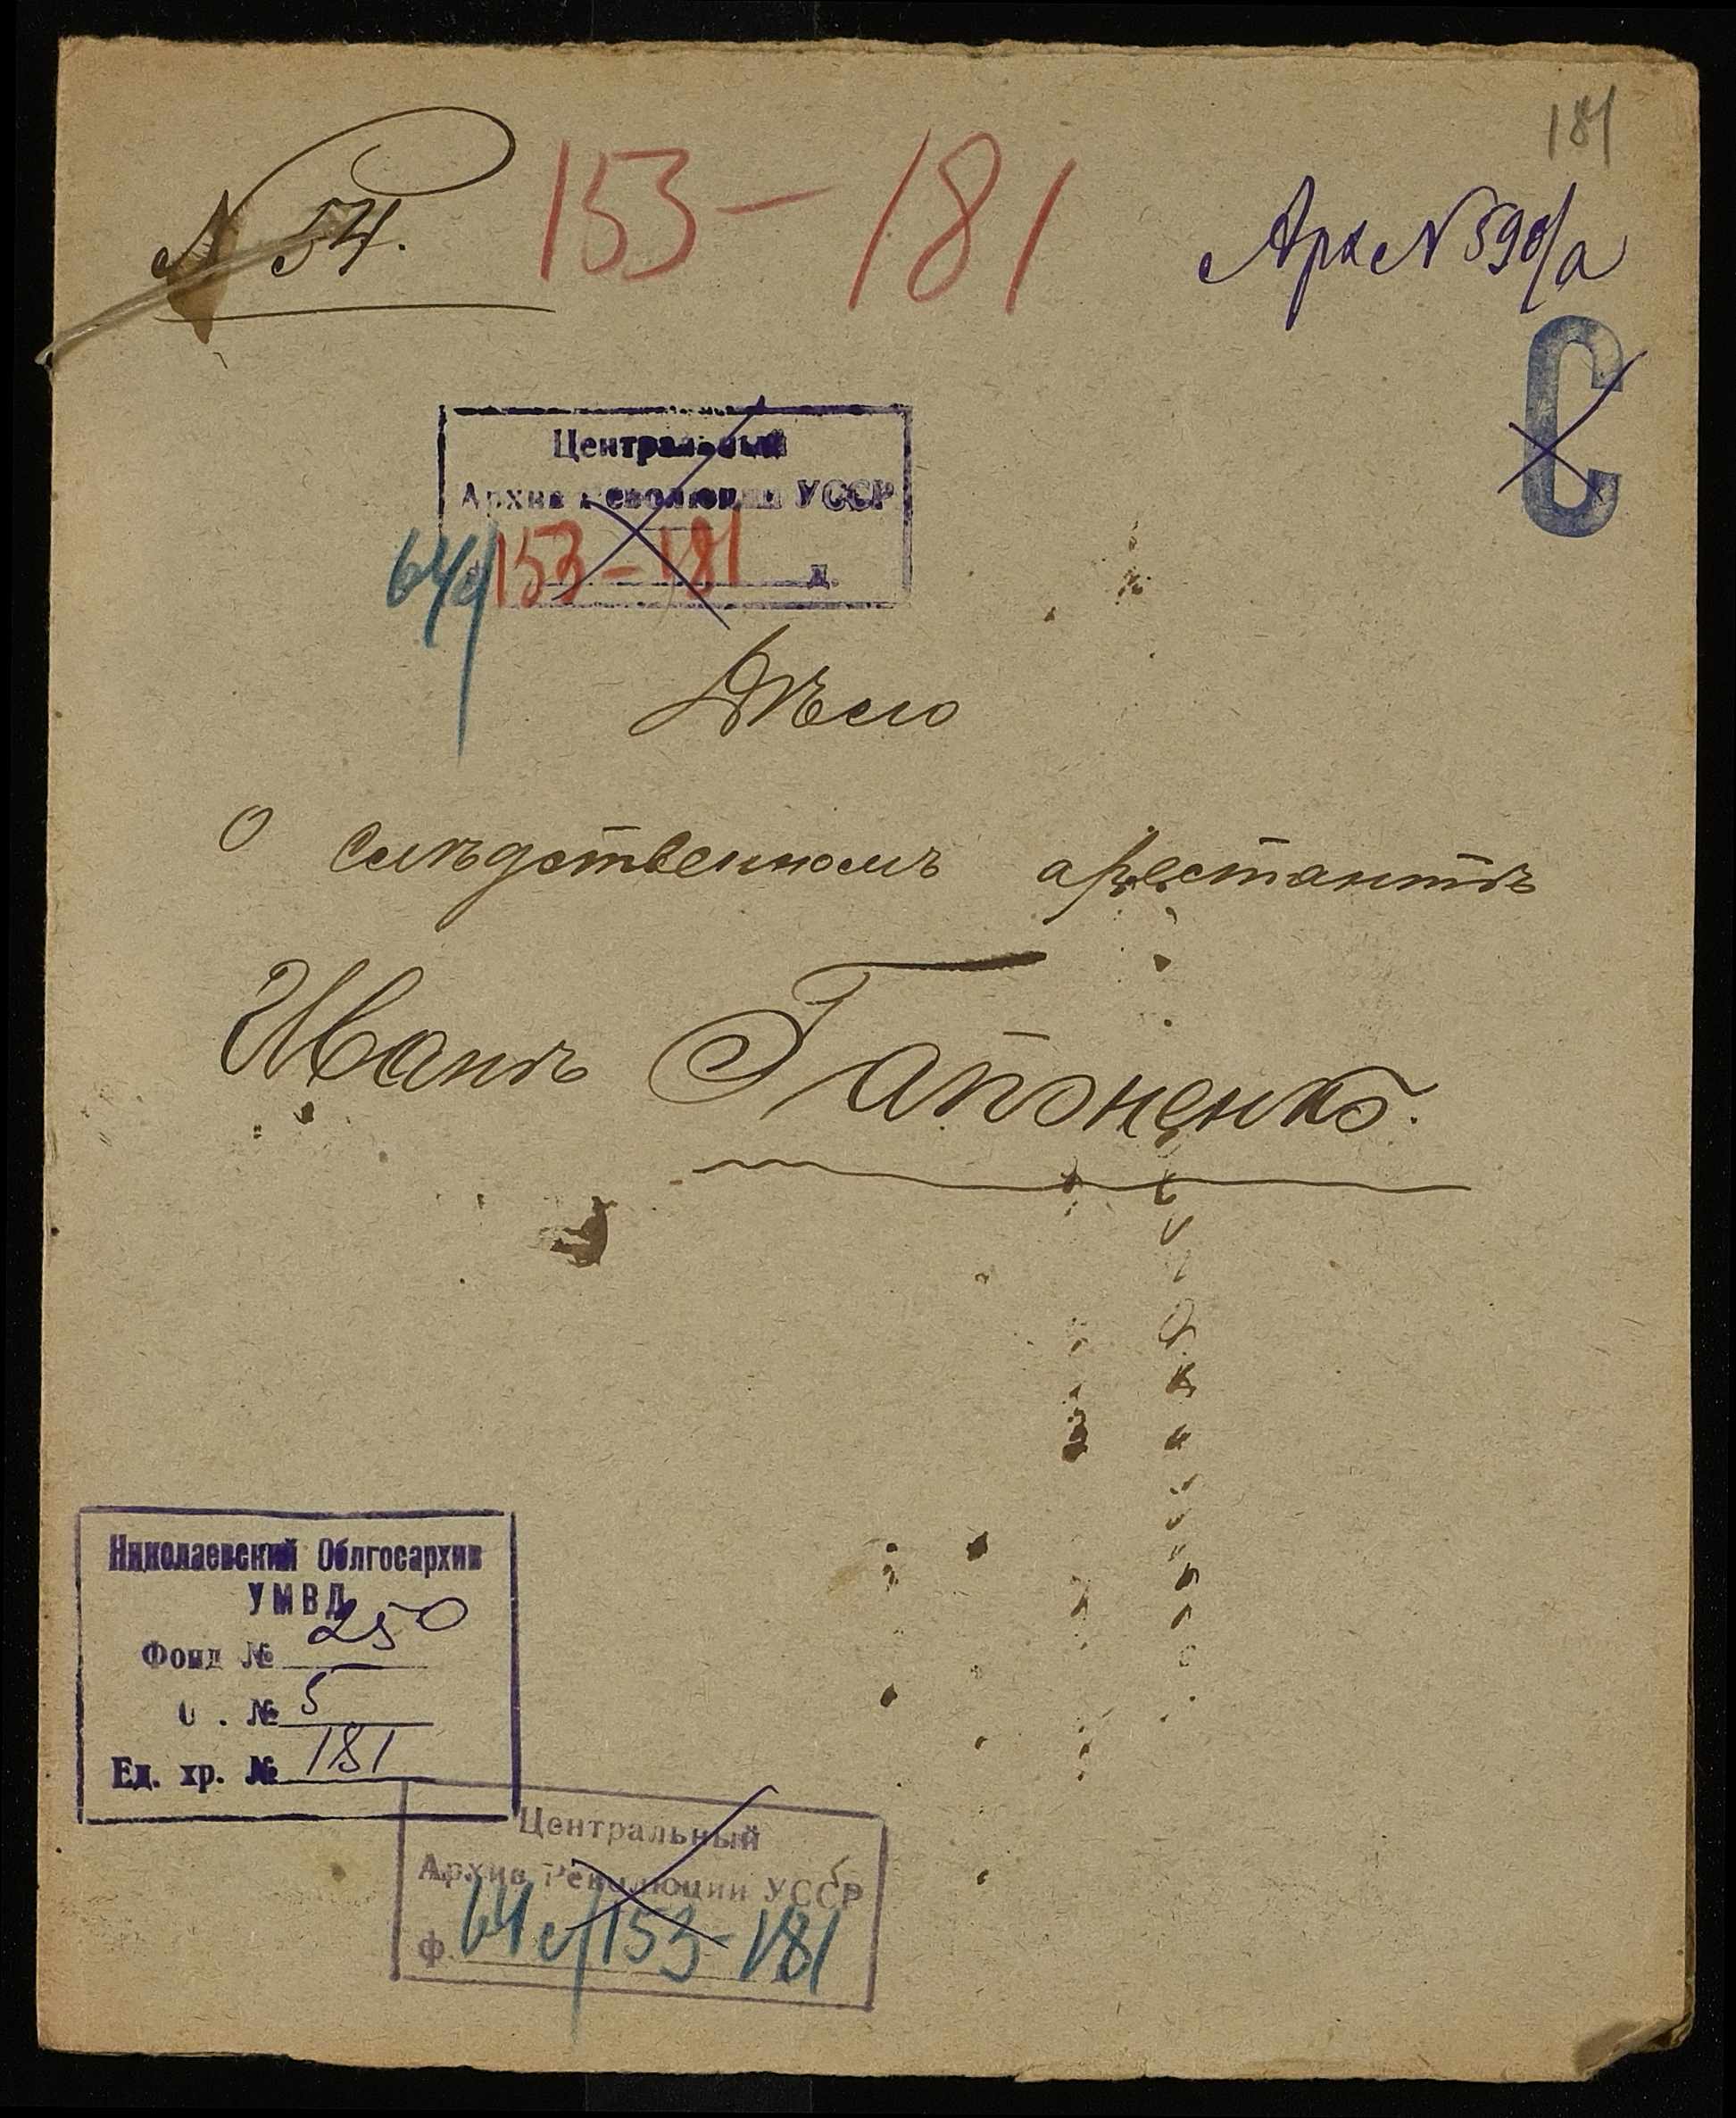 181
№ 54.
153 – 181
Арх № 598/а
С
Центральный
Архив Революции УССР
64с/153 – 181 д.
Дѣло
О слѣдственномъ арестантѣ
Иванъ Гапоненко.
Николаевский Облгосархив
УМВД
Фонд № 250
О . № 5
Ед. хр. № 181
Центральный
Архив Революции УССР
ф. 64с/153-181